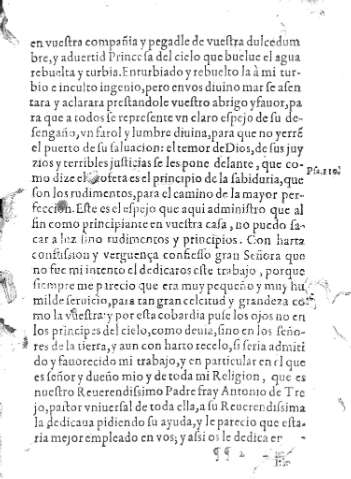 en vuestra compañia y pegadle de vuestra dulcedum
bre, y aduertid Princesa del cielo que buelue el agua
rebuelta y turbia. Enturbiado y rebuelto la à mi tur-
bio e inculto ingenio, pero en vos diuino mar se asen
tara y aclarara prestandole vuestro abrigo y fauor, pa
ra que a todos se represente vn claro espejo de su de-
sengaño, vn farol y lumbre diuina, para que no yerrē
el puerto de su saluacion: el temor de Dios, de sus juy
zios y terribles justicias se les pone delante, que co-
mo dize el Profeta es el principio de la sabiduria, que
Psa. 110.
son los rudimentos, para el camino de la mayor per-
feccion. Este es el espejo que aqui administro que al
fin como principiante en vuestra casa, no puedo sa-
car a luz sino rudimentos y principios. Con harta
confusion y verguença confiesso gran Señora que
no fue mi intento el dedicaros este trabajo, porque
siempre me parecio que era muy pequeño y muy hu
milde seruicio, para tan gran celcitud y grandeza co-
mo la vuestra: y por esta cobardia puse los ojos no en
los principes del cielo, como deuia, sino en los seño-
res de la tierra, y aun con harto recelo, si seria admiti
do y fauorecido mi trabajo, y en particular en el que
es señor y dueño mio y de toda mi Religion, que es
nuestro Reuerendissimo Padre fray Antonio de Tre
jo, pastor vniuersal de toda ella, a su Reuerendissima
la dedicaua pidiendo su ayuda, y le parecio que esta-
ria mejor empleado en vos; y asi os le dedica er
¶¶ 2